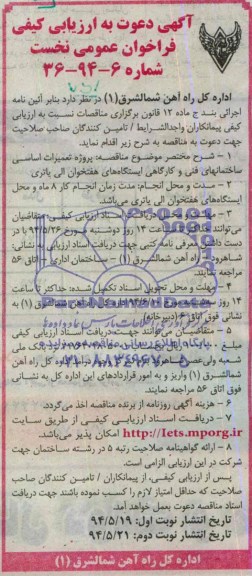 آگهی دعوت به ارزیابی کیفی
فراخوان عمومی نخست
شماره ۶-۹۴-۳۶
اداره کل راه آهن شمالشرق(۱) در نظر دارد بنابر آئین نامه
اجرائی بند ج ماده ۱۲ قانون برگزاری مناقصات نسبت به ارزیابی
کیفی پیمانکاران واجدالشرایط / تامین کنندگان صاحب صلاحیت
جهت دعوت به مناقصه به شرح زیر اقدام نماید.
۱ – شرح مختصر موضوع مناقصه: پروژه تعمیرات اساسی
ساختمانهای فنی و کارگاهی ایستگاههای هفتخوان الی یاتری
۲ – مدت و محل انجام: مدت زمان انجام کار ۸ ماه و محل
ایستگاههای هفتخوان الی یاتری می‌باشد.
۳ – مهلت و محل دریافت اسناد ارزیابی کیفی: متقاضیان
می‌توانند تا ساعت ۱۳ روز دوشنبه مورخ ۹۴/۵/۲۶ با در
دست داشتن معرفی نامه کتبی جهت دریافت اسناد ارزیابی به نشانی:
شاهرود – راه آهن شمالشرق (۱) – ساختمان اداری – اتاق ۵۶
مراجعه نمایند.
۴ – مهلت و محل تحویل اسناد تکمیل شده: حداکثر تا ساعت
۱۴ روز اداره کل راه آهن شمالشرق (۱) به
نشانی فوق اتاق ۶ (دبیرخانه)
۵ – متقاضیان می‌توانند جهت دریافت اسناد ارزیابی کیفی
مبلغ بانک ملی
شعبه ولی‌عصر شاهرود اداره کل راه آهن
شمالشرق (۱) واریز و به امور قراردادهای این اداره کل به نشانی
فوق اتاق ۵۶ مراجعه نمایند.
۶ – هزینه آگهی روزنامه از برنده مناقصه اخذ می‌گردد.
۷ – دریافت اسناد ارزیابی کیفی از طریق سایت
http://Iets.mporg.ir امکان پذیر می‌باشد.
۸ – ارائه گواهینامه صلاحیت رتبه ۵ در رشته ساختمان جهت
شرکت در این ارزیابی الزامی است.
پس از ارزیابی کیفی، از پیمانکاران / تامین کنندگان صاحب
صلاحیت که حداقل امتیاز لازم را کسب نموده باشند جهت دریافت
اسناد مناقصه دعوت بعمل خواهد آمد.
تاریخ انتشار نوبت اول: ۹۴/۵/۱۹
تاریخ انتشار نوبت دوم: ۹۴/۵/۲۱
اداره کل راه آهن شمالشرق (۱)